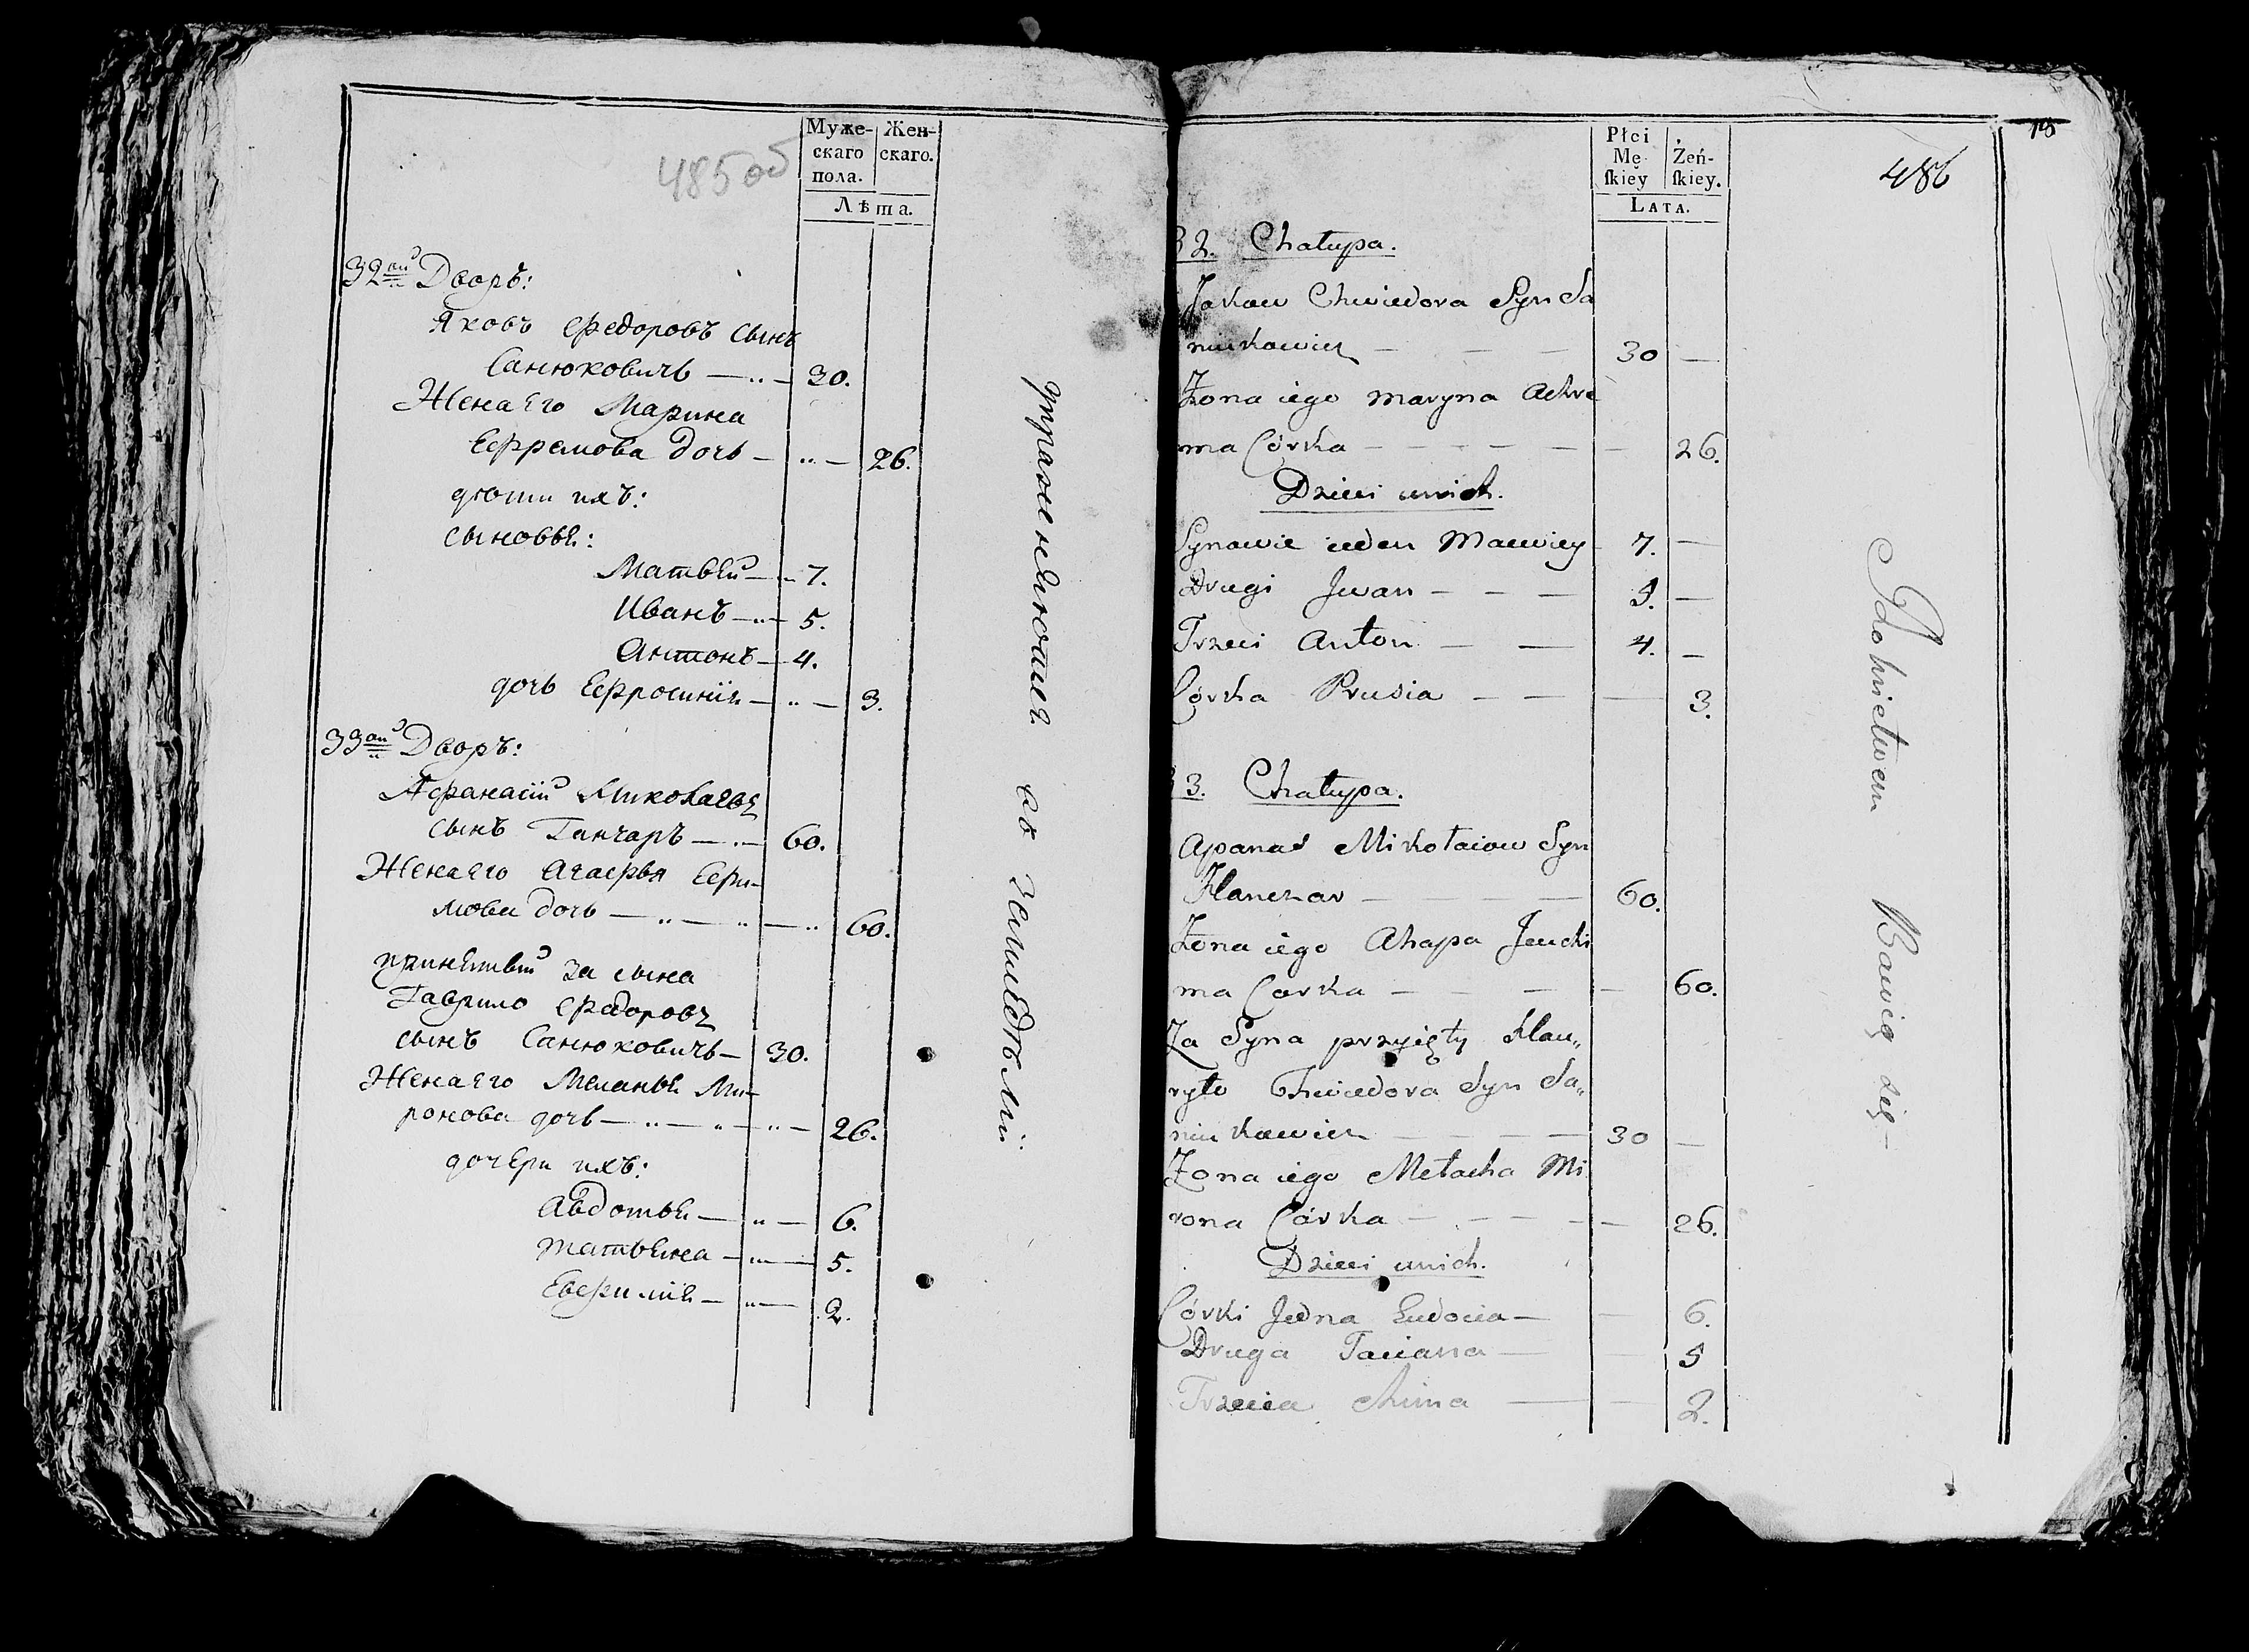 485 об
Муже-
скаго
пола.
Жен-
скаго.
Лѣта.
32ый Дворъ:
Яковъ Федоровъ сынъ
Санюковичъ — „ — 30.
Жена его Марина
Ефремова дочь — „ — 26.
дѣти ихъ:
сыновья:
Матвѣй — „ 7.
Иванъ — „ — 5.
Антонъ — 4.
дочь Ефросинія — „ — 3.
33ый Дворъ:
Афанасій Миколаевъ
сынъ Ганчаръ — „ — 60.
Жена его Агафья Ефи-
мова дочь — „ — „ — „ 60.
принятый за сына
Гаврило Федоровъ
сынъ Санюковичъ — 30.
Жена его Меланья Ми-
ронова дочь — „ — „ — „ — 26.
дочери ихъ:
Авдотья — „ — 6.
Татьяна — „ — 5.
Евфимія — „ — 2.
упражняются въ земледѣліи.
Płci
Mę
skiey
Żeń-
skiey.
LATA.
19
486
32. Chałupa.
Jakow Chwiedora Syn Sa
niukowicz — — — 30 —
Żona iego Maryna Achre
ma Córka — — — — — — 26.
Dzieci unich.
Synowie ieden Maciviey 7. —
Drugi Jwan — — — 5. —
Trzeci Anton — — 4. —
Córka Prusia — — — 3.
33. Chałupa.
Apanas Mikołaiow Syn
Hanczar — — — — 60.
Żona iego Ahapa Jauchi
ma Corka — — — — 60.
Za Syna przyięty Hau„
ryło Chwiedora Syn Sa„
niukowicz — — — — 30 —
Żona iego Mełacha Mi
rona Córka — — — — — 26.
Dzieci unich.
Córki Jedna Eudocia — — 6.
Druga Taciana — — 5
Trzecia Chima — — 2.
Rolnictwem Bawią się —